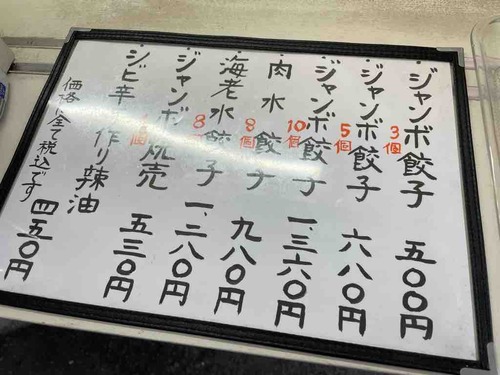 ・ジャンボ餃子 3個 五〇〇円
・ジャンボ餃子 5個 六八〇円
・ジャンボ餃子 10個 一、三六〇円
・肉水餃子 8個 九八〇円
・海老水餃子 8 一、三八〇円
・ジャンボ焼売 個 五三〇円
・シビ辛 作り辣油 四五〇円
価格は全て税込です